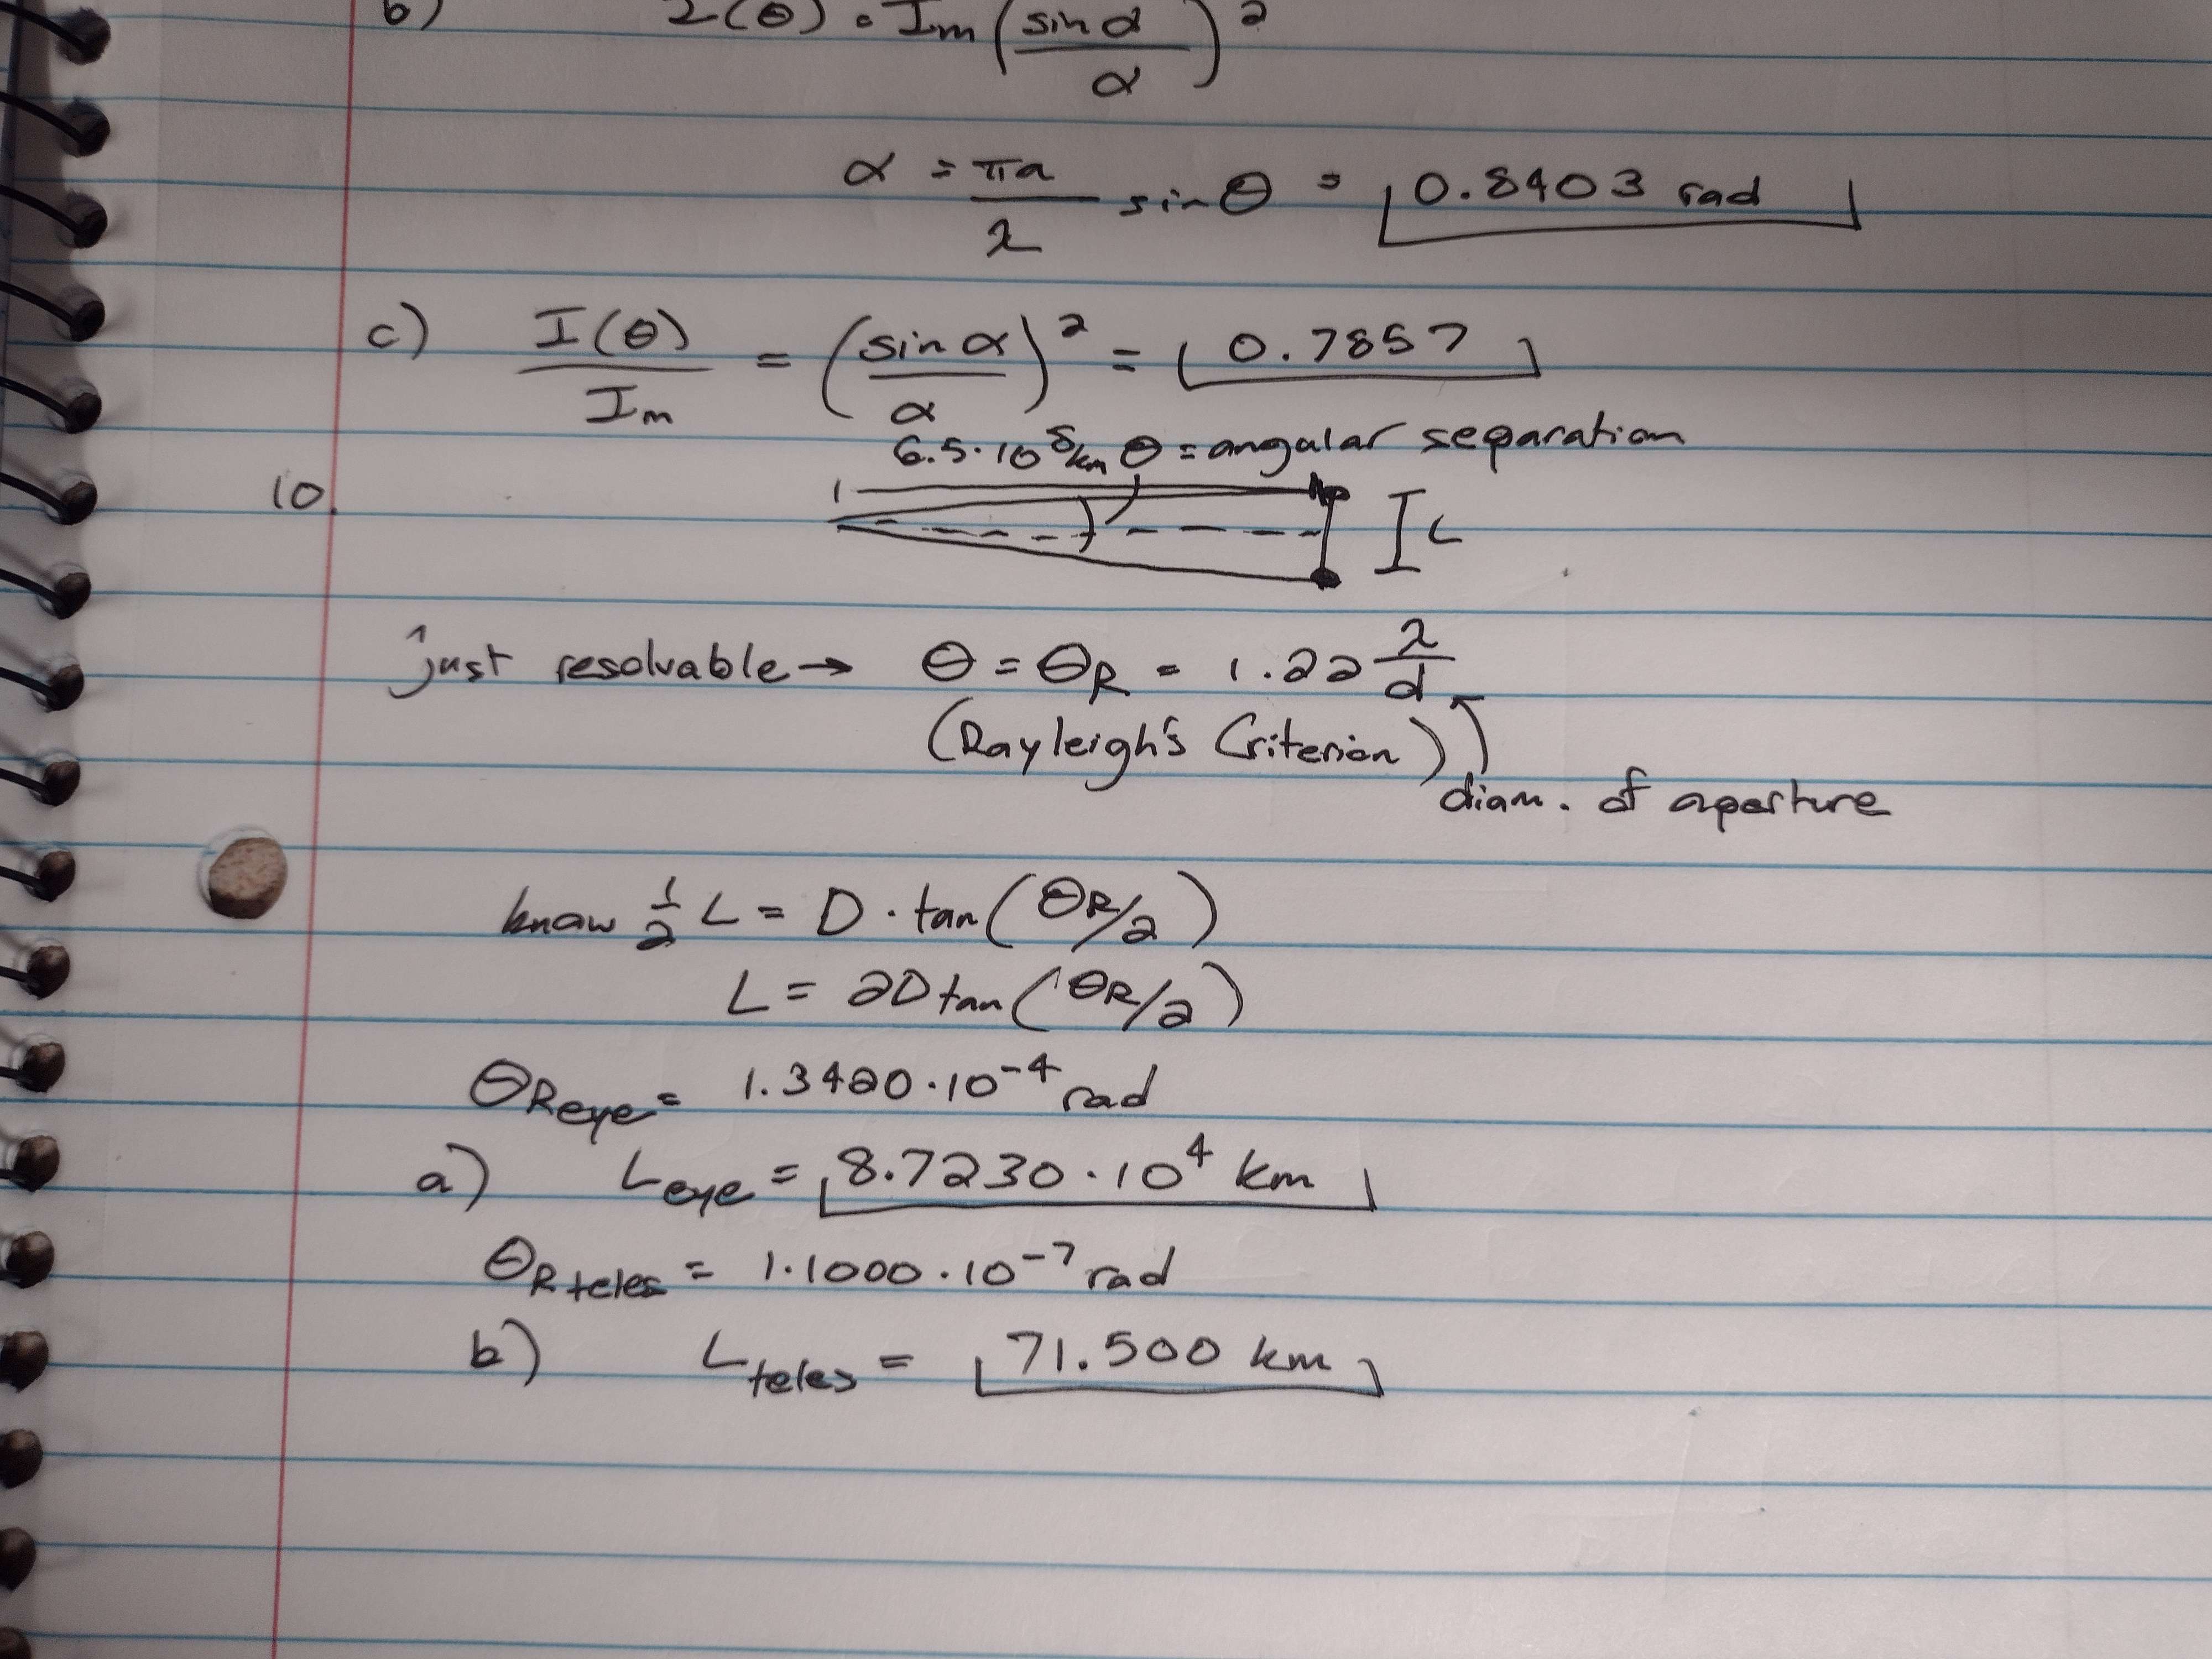 b) I(θ) = Im (sin α / α)²
α = πa/λ sin θ = 0.8403 rad
c) I(θ)/Im = (sin α / α)² = 0.7857
6.5·10⁸ km θ = angular separation
10. L
just resolvable → θ = θR = 1.22 λ/d
(Rayleigh's Criterion)
diam. of aperture
know ½ L = D · tan(θR/2)
L = 2D tan(θR/2)
θR eye = 1.3420·10⁻⁴ rad
a) L eye = 8.7230·10⁴ km
θR teles = 1.1000·10⁻⁷ rad
b) L teles = 71.500 km